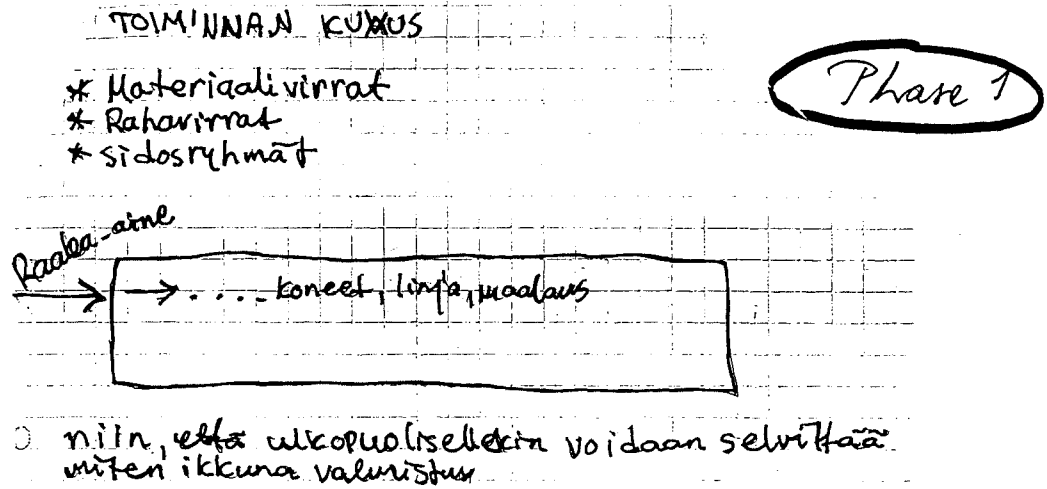 TOIMINNAN KUVAUS
Phase 1
* Materiaalivirrat
* Rahavirrat
* sidosryhmät
Raaka-aine
→ . . . . koneet, linja, maalaus
niin, että ulkopuolisellekin voidaan selvittää
miten ikkuna valmistuu